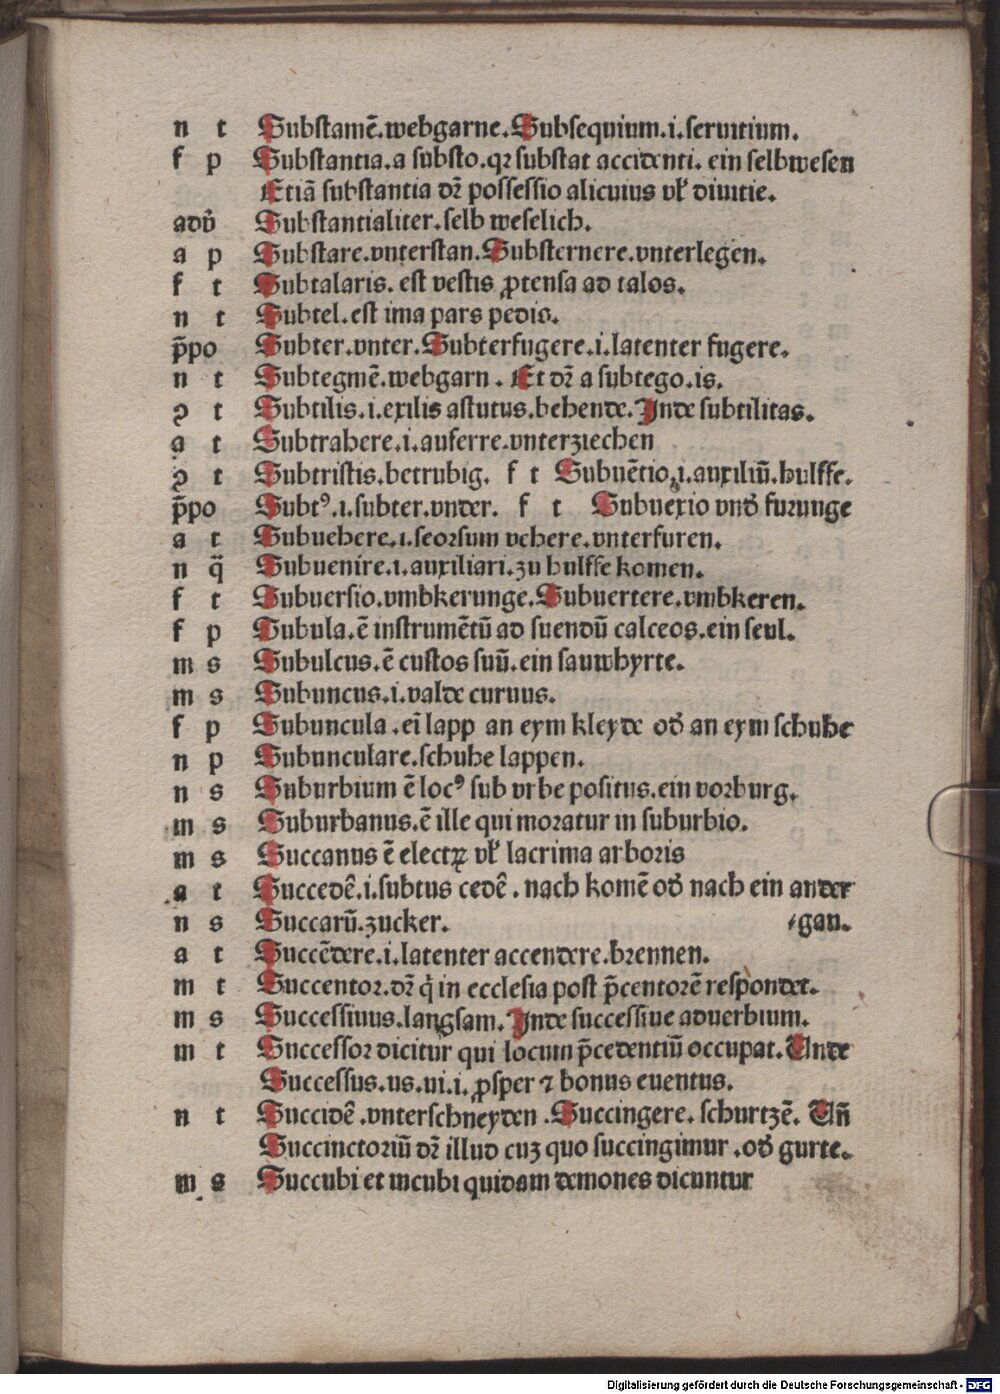 n t Substamē.webgarne.Subsequium.i.seruitium.
f p Substantia.a substo.qꝛ substat accidenti. ein selbwesen
Etiā substantia dꝛ̄ possessio alicuius vl̓ diuitie.
adv̓ Substantialiter.selb weselich.
a p Substare.vnterstan.Substernere.vnterlegen.
f t Subtalaris. est vestis ꝓtensa ad talos.
n t Subtel.est ima pars pedis.
p̄po Subter.vnter.Subterfugere.i.latenter fugere.
n t Subtegmē.webgarn . Et dꝛ̄ a subtego.is.
ꝯ t Subtilis.i.exilis astutus.behende.Inde subtilitas.
a t Subtrahere.i.auferre.vnterziechen
ꝯ t Subtristis.betrubig. f t Subuētio.i.auxiliū.hulffe.
p̄po Subtꝰ.i.subter.vnder. f t Subuexio vnd̓ furunge
a t Subuehere.i.seorsum vehere.vnterfuren.
n q̄ Subuenire.i.auxiliari.zu hulffe komen.
f t Subuersio.vmbkerunge.Subuertere.vmbkeren.
f p Subula.ē instrumētū ad suendū calceos.ein seul.
m s Subulcus.ē custos suū.ein sauwhyrte.
m s Subuncus.i.valde curuus.
f p Subuncula .eī lapp an eym kleyde od̓ an eym schuhe
n p Subunculare.schuhe lappen.
n s Suburbium ē locꝰ sub vrbe positus.ein vorburg.
m s Suburbanus.ē ille qui moratur in suburbio.
m s Succanus ē electꝝ vl̓ lacrima arboris
a t Succedē.i.subtus cedē . nach komē od̓ nach ein ander
n s Succarū.zucker. gan.
a t Succēdere.i.latenter accendere.brennen.
m t Succentor.dꝛ̄ q̇ in ecclesia post p̄centorē respondet.
m s Successiuus.langsam.Inde successiue aduerbium.
m t Successor dicitur qui locum p̄cedentiū occupat.Unde
Successus.us.ui.i. ꝓsper ⁊ bonus euentus.
n t Succidē .vnterschneyden .Succingere. schurtzē. Un̄
Succinctoriū dꝛ̄ illud cuꝫ quo succingimur .od̓ gurte.
m s Succubi et incubi quidam demones dicuntur
Digitalisierung gefördert durch die Deutsche Forschungsgemeinschaft - DFG